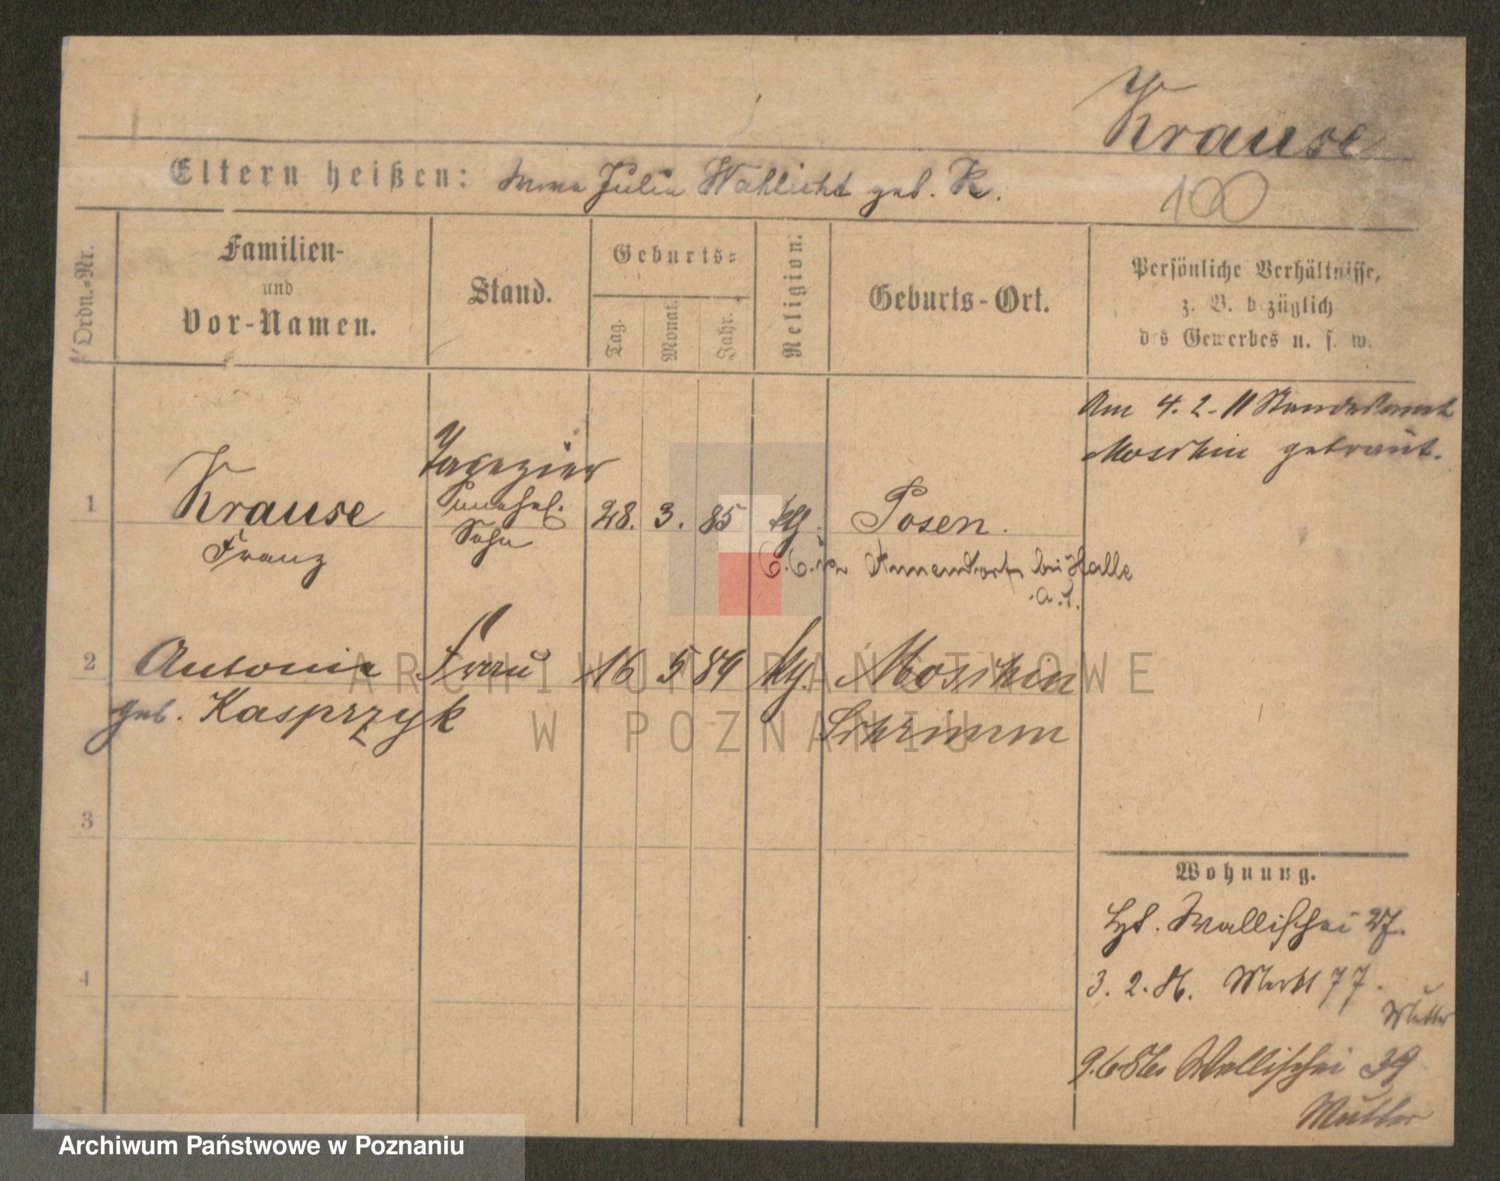 Krause
Eltern heißen: Julia geb. K.
100
Ordn.-Nr.
Familien-
und
Vor-Namen.
Stand.
Geburts-
Tag.
Monat.
Jahr.
Religion.
Geburts-Ort.
Persönliche Verhältnisse,
z. B. bezüglich
des Gewerbes u. s. w.
Am 4. 2. 11 Standesamt
Moschin getraut.
1
Krause
Franz
Tapezier
unehel.
Sohn
28. 3. 85
Posen.
Ammendorf bei Halle
a. S.
2
Antonia
geb. Kasprzyk
Frau
16 5 89
Moschin
Schrimm
3
4
Wohnung.
Wallischei 27.
3. 2. 86. Markt 77.
Mutter
9.6.86 Wallischei 39
Mutter
ARCHIWUM PAŃSTWOWE
W POZNANIU
Archiwum Państwowe w Poznaniu